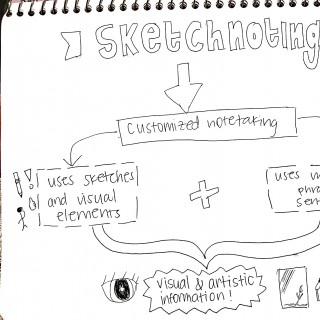 Sketchnoting
customized notetaking
uses sketches
and visual
elements
+
uses
visual & artistic
information!